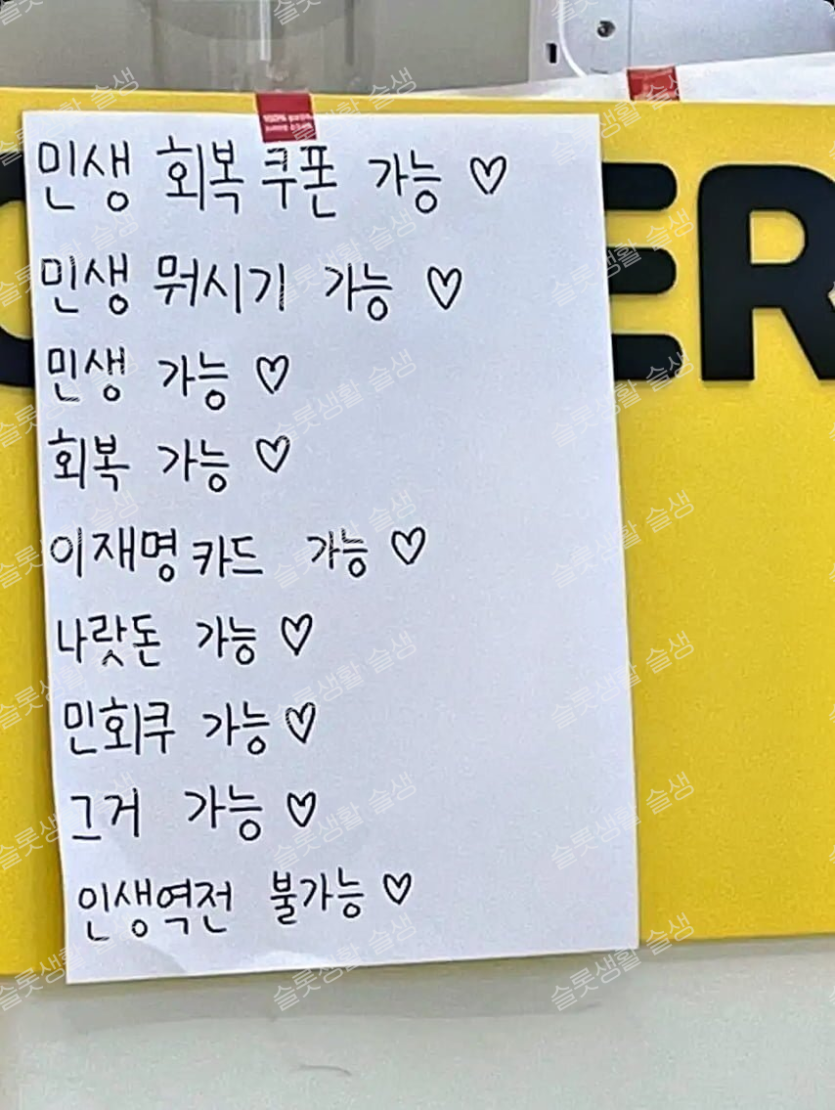 민생 회복 쿠폰 가능 ♡
민생 뭐시기 가능 ♡
민생 가능 ♡
회복 가능 ♡
이재명 카드 가능 ♡
나랏돈 가능 ♡
민회쿠 가능 ♡
그거 가능 ♡
인생역전 불가능 ♡
ER
슬롯생활 슬생